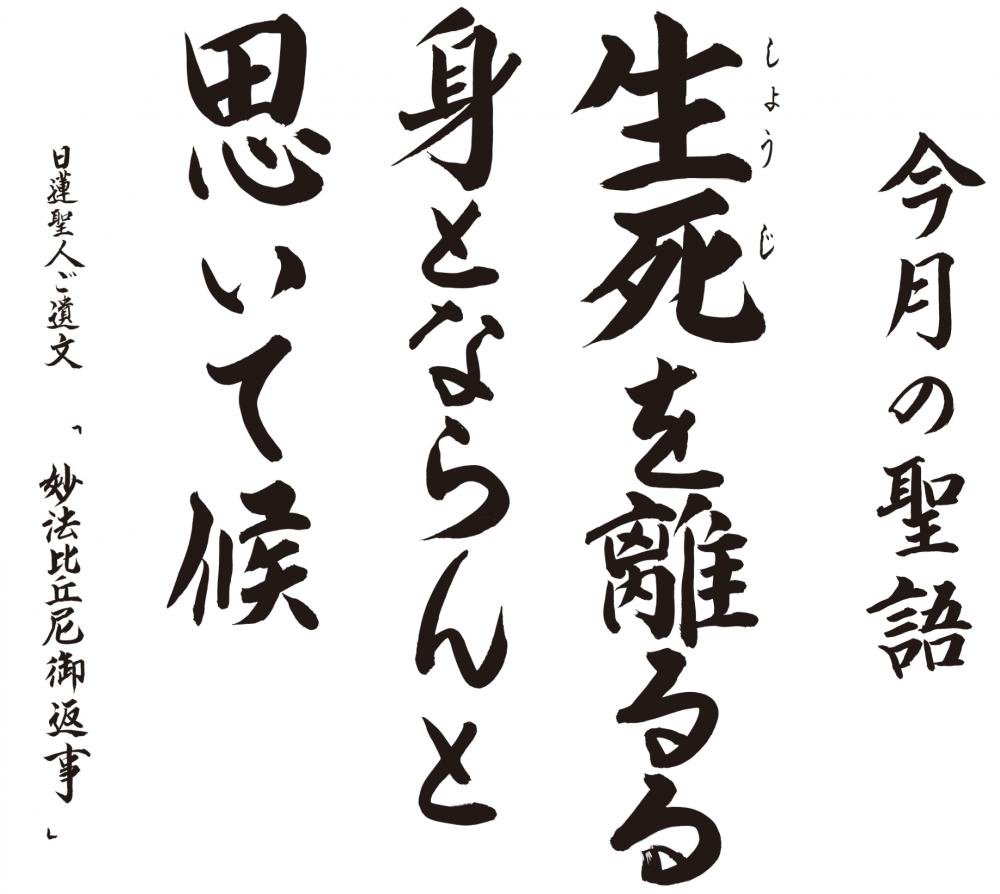 今月の聖語
しょうじ
生死を離るる
身とならんと
思いて候
日蓮聖人ご遺文 「妙法比丘尼御返事」